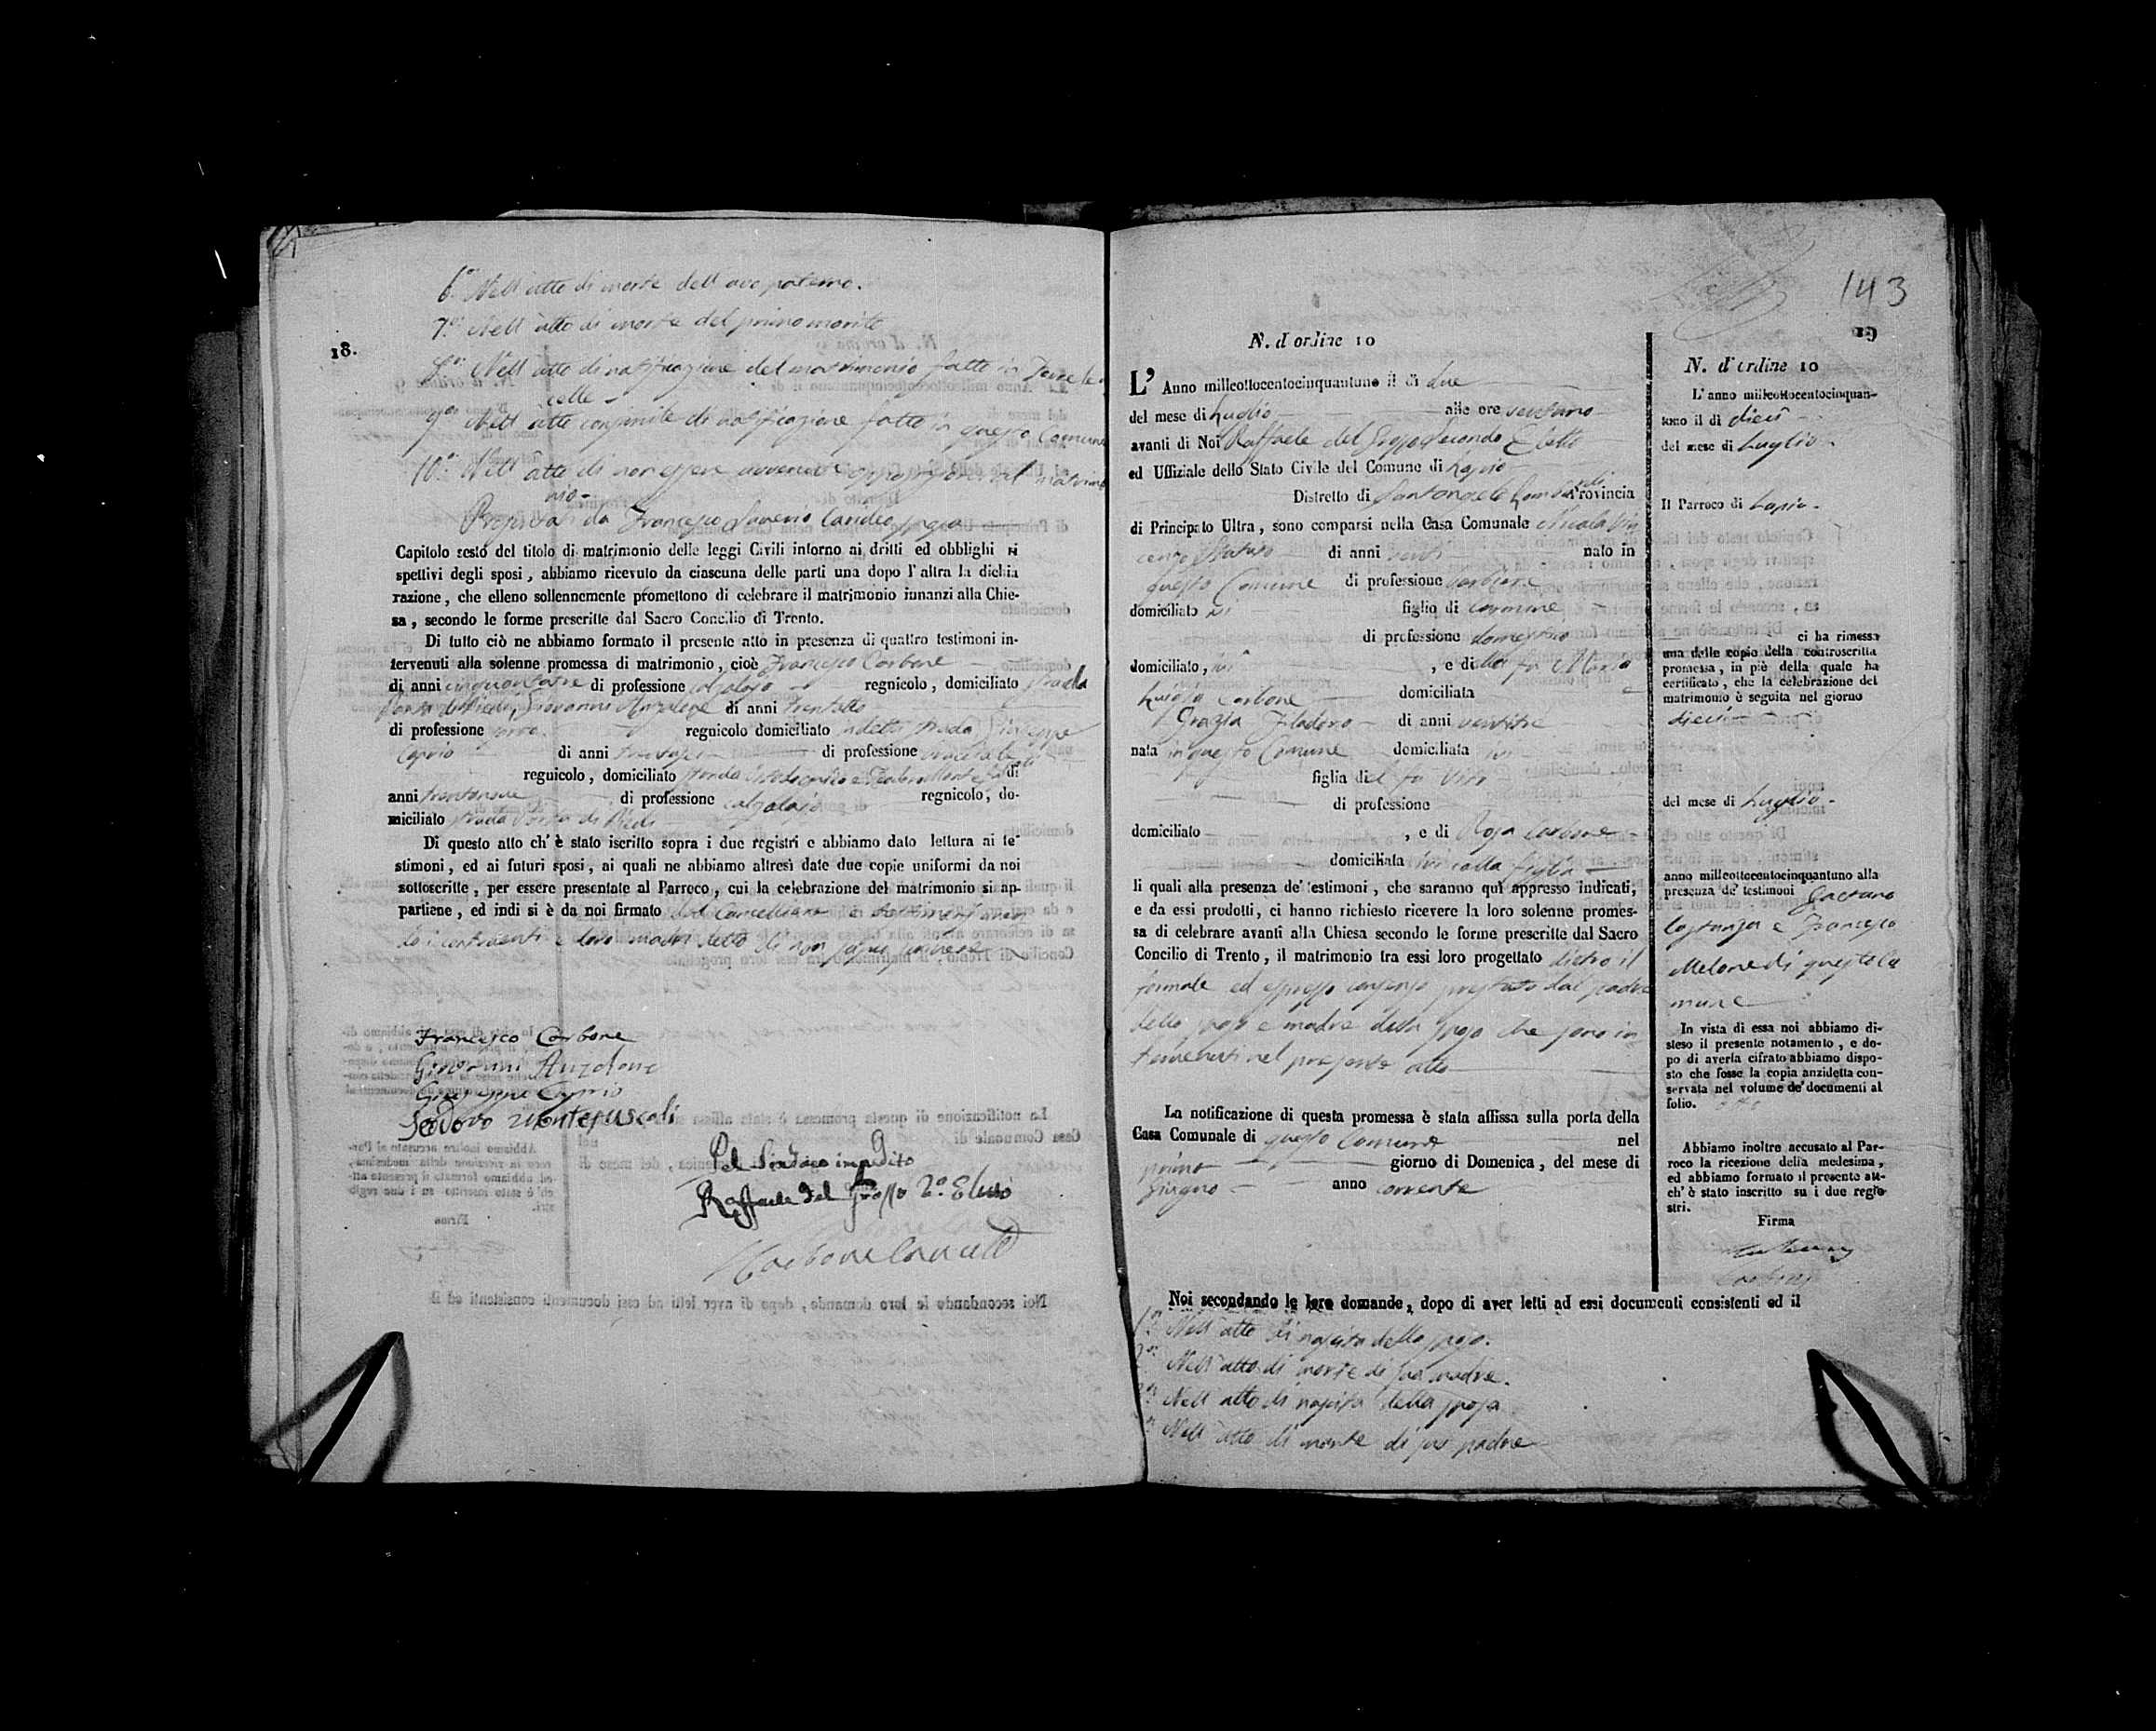 6.° Nell' atto di morte dell' avo paterno.
7.° Nell' atto di morte del primo marito
18.
8.° Nell' atto di notificazione del matrimonio fatto in Torre le no
celle
9.° Nell' atto consimile di notificazione fatto in questo Comune
10.° Nell' atto di non essere avvenute opposizione al matrimo
nio
da Francesco Saverio
Capitolo sesto del titolo di matrimonio delle leggi Civili intorno ai dritti ed obblighi ri
spettivi degli sposi, abbiamo ricevuto da ciascuna delle parti una dopo l' altra la dichia
razione, che elleno sollennemente promettono di celebrare il matrimonio innanzi alla Chie-
sa, secondo le forme prescritte dal Sacro Concilio di Trento.
Di tutto ciò ne abbiamo formato il presente atto in presenza di quattro testimoni in-
tervenuti alla solenne promessa di matrimonio, cioè Francesco Carbone
di anni cinquantatre di professione calzolajo regnicolo, domiciliato strada
Porta di Piedi, Giovanni Anzalone di anni trentotto
di professione regnicolo domiciliato in detta strada Giuseppe
Caprio di anni di professione
regnicolo, domiciliato strada e Teodoro Montefuscoli di
anni trentanove di professione calzolajo regnicolo, do-
miciliato strada Porta di Piedi
Di questo atto ch' è stato iscritto sopra i due registri e abbiamo dato lettura ai te
stimoni, ed ai futuri sposi, ai quali ne abbiamo altresì date due copie uniformi da noi
sottoscritte, per essere presentate al Parroco, cui la celebrazione del matrimonio si ap-
partiene, ed indi si è da noi firmato dal Cancelliere e testimoni aven
do i contraenti e loro madri detto di non saper scrivere
Francesco Carbone
Giovanni Anzalone
Giuseppe Caprio
Teodoro Montefuscoli
Pel Sindaco impedito
Raffaele del Grosso 2.° Eletto
Carbone Canc
143
19
N. d'ordine 10
L' Anno milleottocentocinquantuno il di due
del mese di Luglio alle ore ventuno
avanti di Noi Raffaele del Grosso Secondo Eletto
ed Uffiziale dello Stato Civile del Comune di Lapio
Distretto di Santangelo Lombardi Provincia
di Principato Ultra, sono comparsi nella Casa Comunale Nicola Vin
cenzo di anni venti nato in
questo Comune di professione
domiciliato ivi figlio di Carmine
di professione domestico
domiciliato, ivi, e della fu Maria
Carbone domiciliata
Grazia di anni ventitre
nata in questo Comune domiciliata ivi
figlia del fu
di professione
domiciliato, e di Rosa Carbone
domiciliata ivi colla figlia
li quali alla presenza de' testimoni, che saranno quì appresso indicati,
e da essi prodotti, ci hanno richiesto ricevere la loro solenne promes-
sa di celebrare avanti alla Chiesa secondo le forme prescritte dal Sacro
Concilio di Trento, il matrimonio tra essi loro progettato dietro il
formale ed espresso consenso prestato dal padre
dello sposo e madre della sposa che sono in
tervenuti nel presente atto
La notificazione di questa promessa è stata affissa sulla porta della
Casa Comunale di questo Comune nel
primo giorno di Domenica, del mese di
Giugno anno corrente
Noi secondando le loro domande, dopo di aver letti ad essi documenti consistenti ed il
1.° Nell' atto di nascita dello sposo.
2.° Nell' atto di morte di sua madre.
3.° Nell' atto di nascita della sposa
4.° Nell' atto di morte di suo padre
N. d'ordine 10
L' anno milleottocentocinquan-
tuno il di dieci
del mese di Luglio
Il Parroco di Lapio
ci ha rimessa
una delle copie della controscritta
promessa, in piè della quale ha
certificato, che la celebrazione del
matrimonio è seguita nel giorno
dieci
del mese di Luglio
anno milleottocentocinquantuno alla
presenza de' testimoni Gaetano
Costanza e Francesco
Melone di questo Co
mune
In vista di essa noi abbiamo di-
steso il presente notamento, e do-
po di averla cifrato abbiamo dispo-
sto che fosse la copia anzidetta con-
servata nel volume de' documenti al
folio.
Abbiamo inoltre accusato al Par-
roco la ricezione della medesima,
ed abbiamo formato il presente att-
ch' è stato inscritto su i due regio-
stri.
Firma